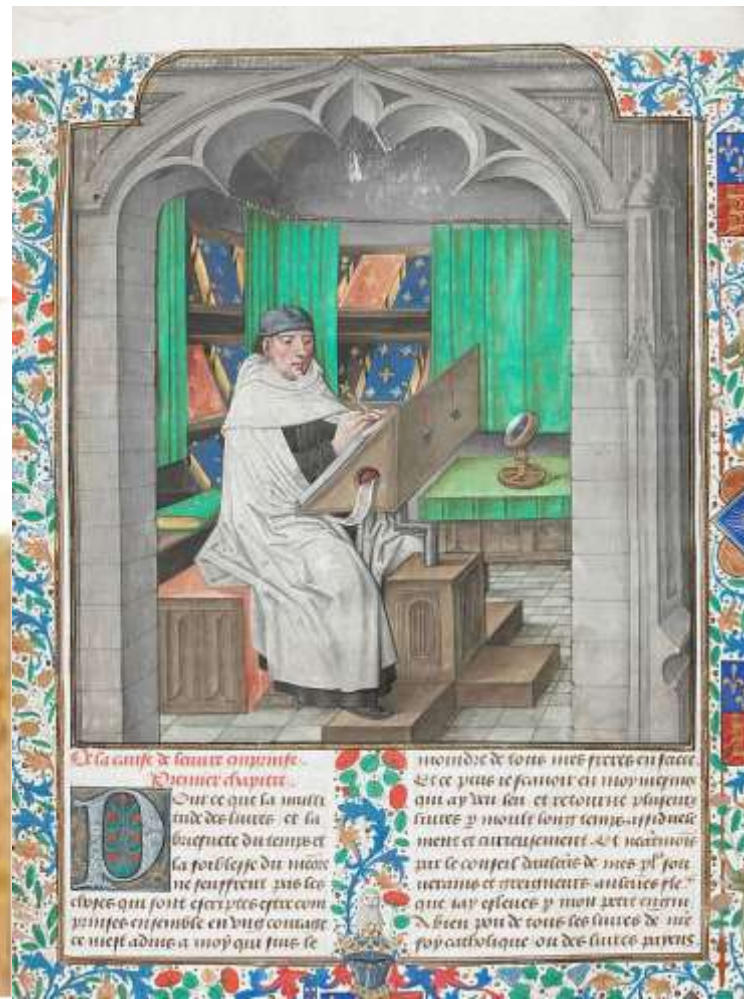 De la cause de leuure emprinse.
Premier chapitre.
Pour ce que la multi
tude des liures et la
briefuete du temps et
la foiblesse du memoire
ne seuffrent pas les
choses qui sont escriptes estre com
prinses ensemble en vng courage
ce mest aduis a moy qui suis le
moindre de tous mes freres en
Et ce puis ie scauoir en moy mesmes
qui ay veu leu et retourne pluseurs
liures p moult long temps assiduele
ment et curieusement. Et neatmois
par le conseil daulcūs de mes
uerains et greigneurs
que iay esleues p mon petit engin
A bien pou de tous les liures de nre
foy catholique ou des liures payens